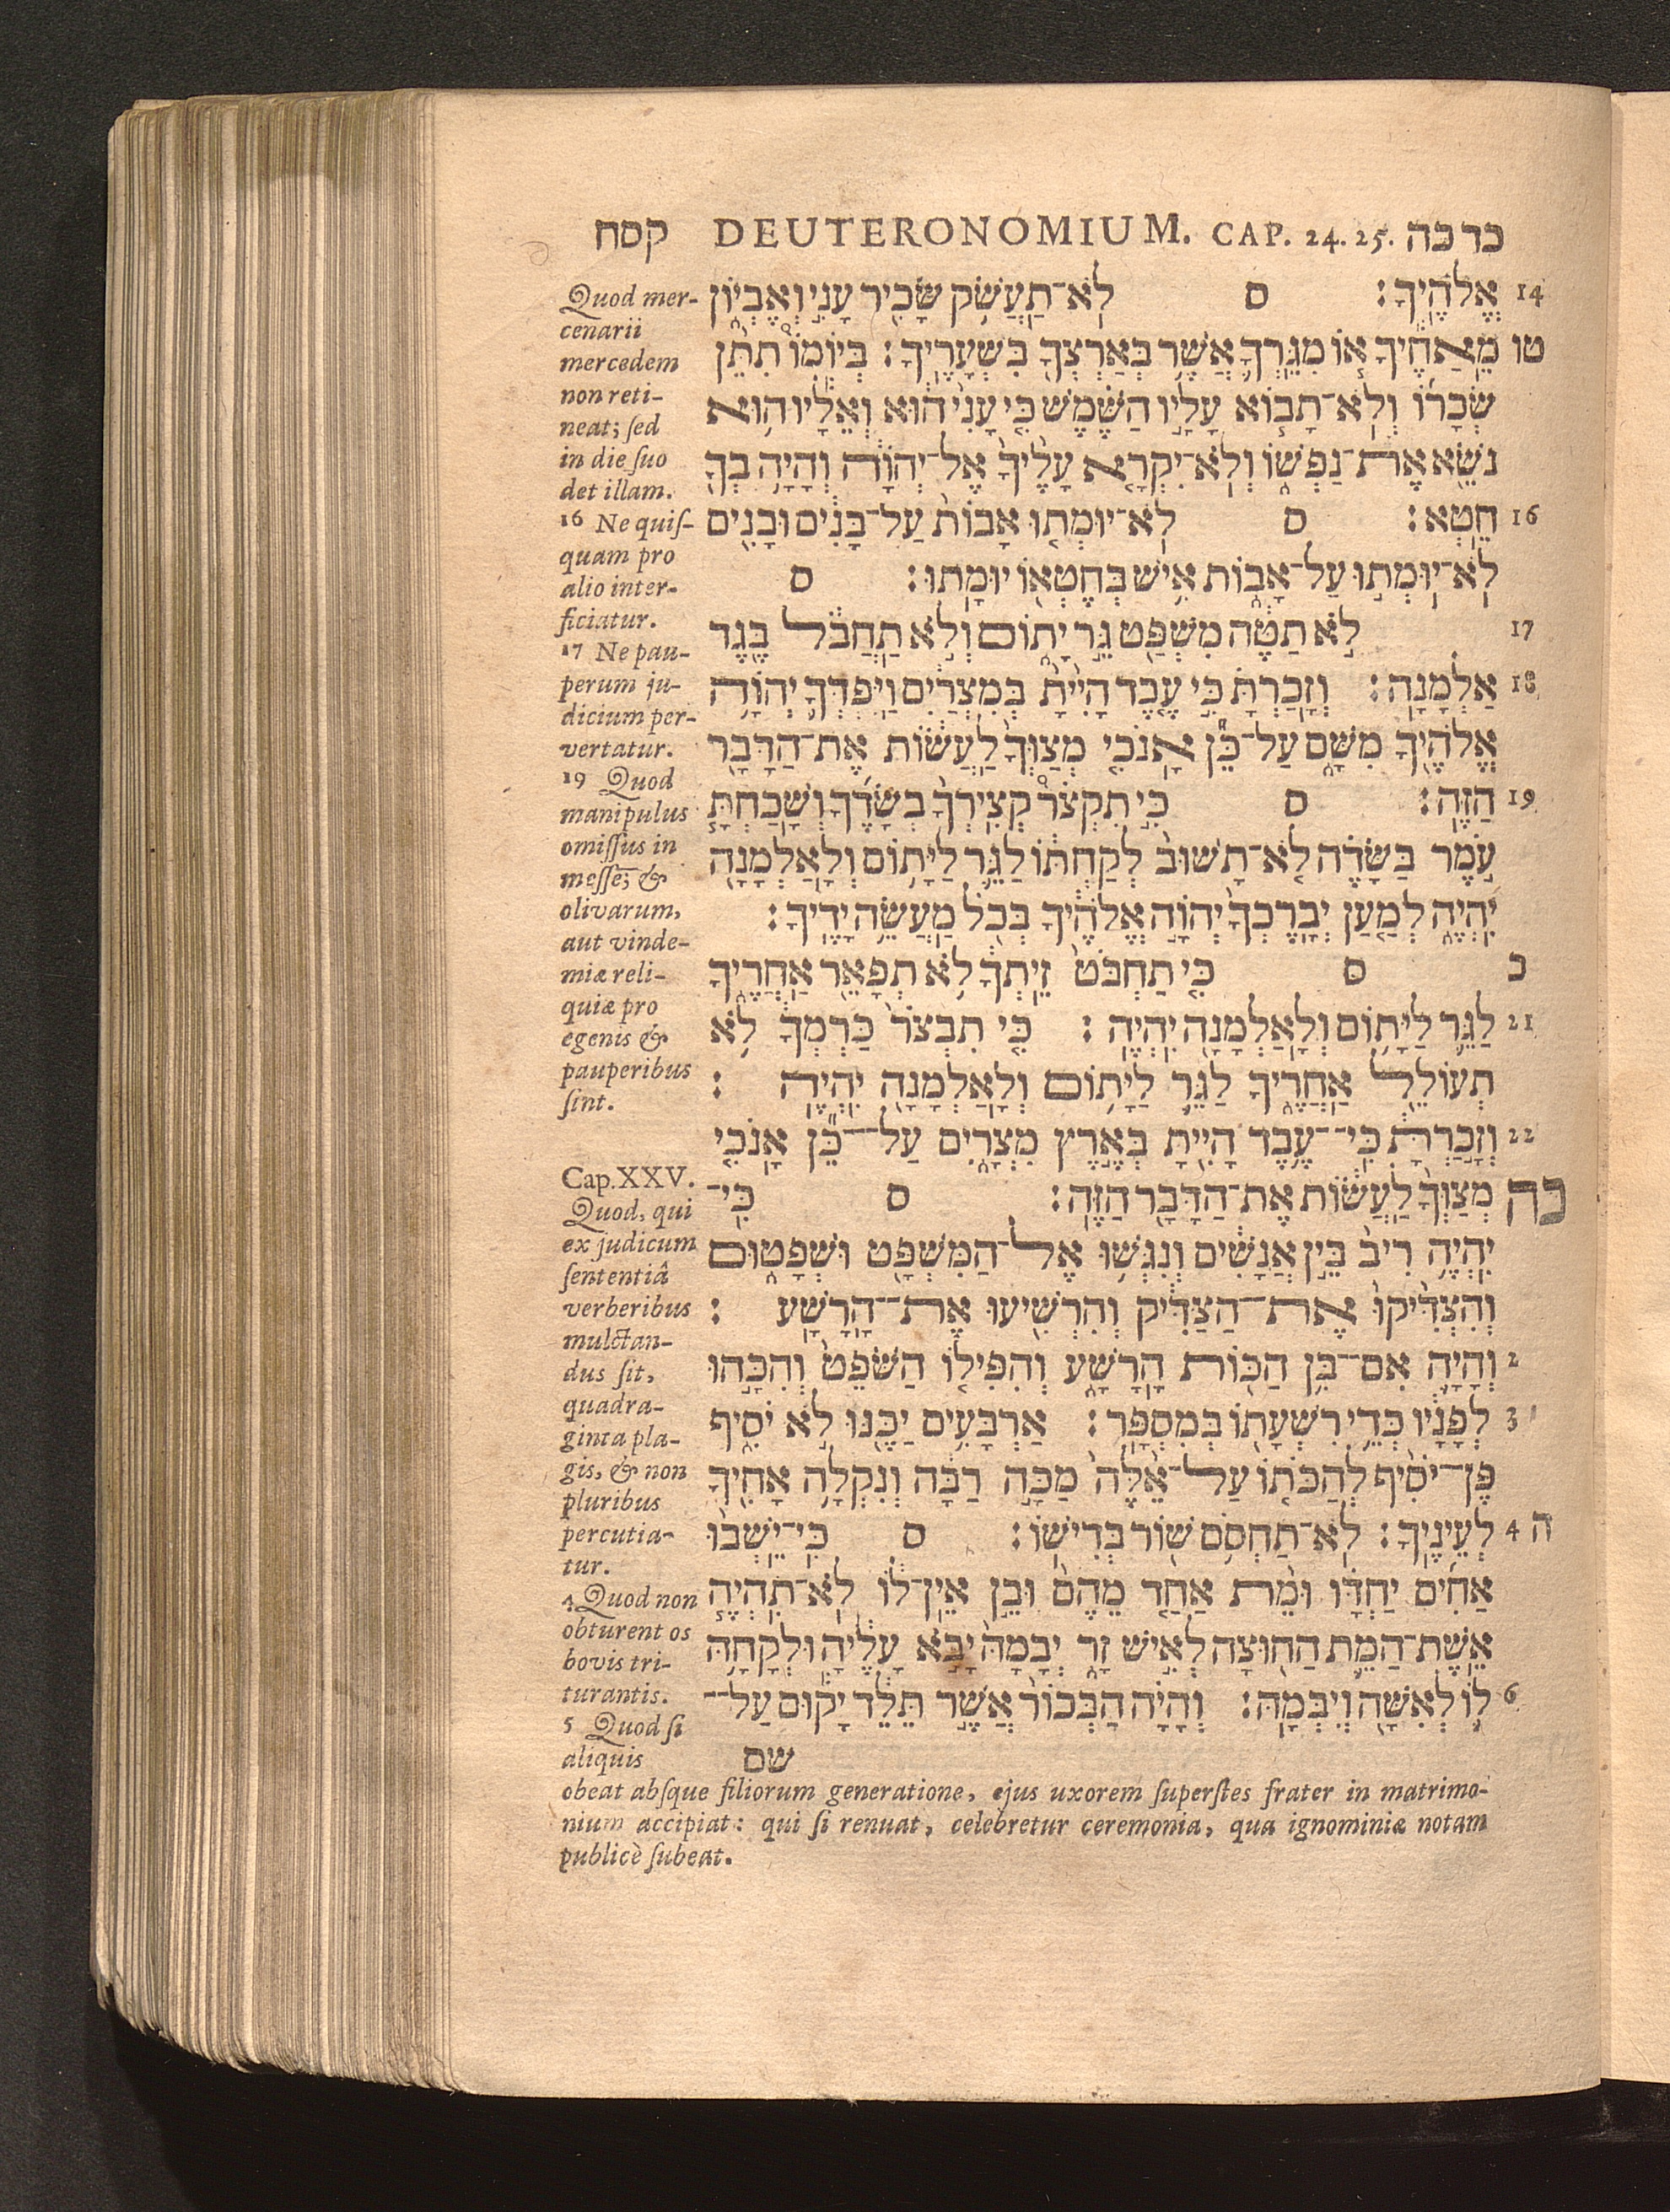 קסח DEUTERONOMIUM. CAP. 24. 25. כד כה
אֱלֹהֶיךָ׃ ס לֹא־תַעֲשֹׁק שָׂכִיר עָנִי וְאֶבְיוֹן 14
מֵאַחֶיךָ אוֹ מִגֵּרְךָ אֲשֶׁר בְּאַרְצְךָ בִּשְׁעָרֶיךָ׃ בְּיוֹמוֹ תִתֵּן טו
שְׂכָרוֹ וְלֹא־תָבוֹא עָלָיו הַשֶּׁמֶשׁ כִּי עָנִי הוּא וְאֵלָיו הוּא
נֹשֵׂא אֶת־נַפְשׁוֹ וְלֹא־יִקְרָא עָלֶיךָ אֶל־יְהוָֹה וְהָיָה בְךָ
חֵטְא׃ ס לֹא־יוּמְתוּ אָבוֹת עַל־בָּנִים וּבָנִים 16
לֹא־יוּמְתוּ עַל־אָבוֹת אִישׁ בְּחֶטְאוֹ יוּמָתוּ׃ ס
לֹא תַטֶּה מִשְׁפַּט גֵּר יָתוֹם וְלֹא תַחֲבֹל בֶּגֶד 17
אַלְמָנָה׃ וְזָכַרְתָּ כִּי עֶבֶד הָיִיתָ בְּמִצְרַיִם וַיִּפְדְּךָ יְהוָֹה 18
אֱלֹהֶיךָ מִשָּׁם עַל־כֵּן אָנֹכִי מְצַוְּךָ לַעֲשׂוֹת אֶת־הַדָּבָר
הַזֶּה׃ ס כִּי תִקְצֹר קְצִירְךָ בְשָׂדֶךָ וְשָׁכַחְתָּ 19
עֹמֶר בַּשָּׂדֶה לֹא־תָשׁוּב לְקַחְתּוֹ לַגֵּר לַיָּתוֹם וְלָאַלְמָנָה
יִהְיֶה לְמַעַן יְבָרֶכְךָ יְהוָֹה אֱלֹהֶיךָ בְּכֹל מַעֲשֵׂה יָדֶיךָ׃
ס כִּי תַחְבֹּט זֵיתְךָ לֹא תְפָאֵר אַחֲרֶיךָ כ
לַגֵּר לַיָּתוֹם וְלָאַלְמָנָה יִהְיֶה׃ כִּי תִבְצֹר כַּרְמְךָ לֹא 21
תְעוֹלֵל אַחֲרֶיךָ לַגֵּר לַיָּתוֹם וְלָאַלְמָנָה יִהְיֶה׃
וְזָכַרְתָּ כִּי־עֶבֶד הָיִיתָ בְּאֶרֶץ מִצְרָיִם עַל־כֵּן אָנֹכִי 22
מְצַוְּךָ לַעֲשׂוֹת אֶת־הַדָּבָר הַזֶּה׃ ס כִּי־ כה
יִהְיֶה רִיב בֵּין אֲנָשִׁים וְנִגְּשׁוּ אֶל־הַמִּשְׁפָּט וּשְׁפָטוּם
וְהִצְדִּיקוּ אֶת־הַצַּדִּיק וְהִרְשִׁיעוּ אֶת־הָרָשָׁע׃
וְהָיָה אִם־בִּן הַכּוֹת הָרָשָׁע וְהִפִּילוֹ הַשֹּׁפֵט וְהִכָּהוּ 2
לְפָנָיו כְּדֵי רִשְׁעָתוֹ בְּמִסְפָּר׃ אַרְבָּעִים יַכֶּנּוּ לֹא יֹסִיף 3
פֶּן־יֹסִיף לְהַכֹּתוֹ עַל־אֵלֶּה מַכָּה רַבָּה וְנִקְלָה אָחִיךָ
לְעֵינֶיךָ׃ לֹא־תַחְסֹם שׁוֹר בְּדִישׁוֹ׃ ס כִּי־יֵשְׁבוּ 4 ה
אַחִים יַחְדָּו וּמֵת אַחַד מֵהֶם וּבֵן אֵין־לוֹ לֹא־תִהְיֶה
אֵשֶׁת־הַמֵּת הַחוּצָה לְאִישׁ זָר יְבָמָהּ יָבֹא עָלֶיהָ וּלְקָחָהּ
לוֹ לְאִשָּׁה וְיִבְּמָהּ׃ וְהָיָה הַבְּכוֹר אֲשֶׁר תֵּלֵד יָקוּם עַל־ 6
שם
Quod mer-
cenarii
mercedem
non reti-
neat; sed
in die suo
det illam.
16 Ne quis-
quam pro
alio inter-
ficiatur.
17 Ne pau-
perum ju-
dicium per-
vertatur.
19 Quod
manipulus
omissus in
messe; &
olivarum,
aut vinde-
miæ reli-
quiæ pro
egenis &
pauperibus
sint.
Cap. XXV.
Quod, qui
ex judicum
sententiâ
verberibus
mulctan-
dus sit,
quadra-
ginta pla-
gis, & non
pluribus
percutia-
tur.
4 Quod non
obturent os
bovis tri-
turantis.
5 Quod si
aliquis
obeat absque filiorum generatione, ejus uxorem superstes frater in matrimo-
nium accipiat: qui si renuat, celebretur ceremonia, qua ignominiæ notam
publicè subeat.